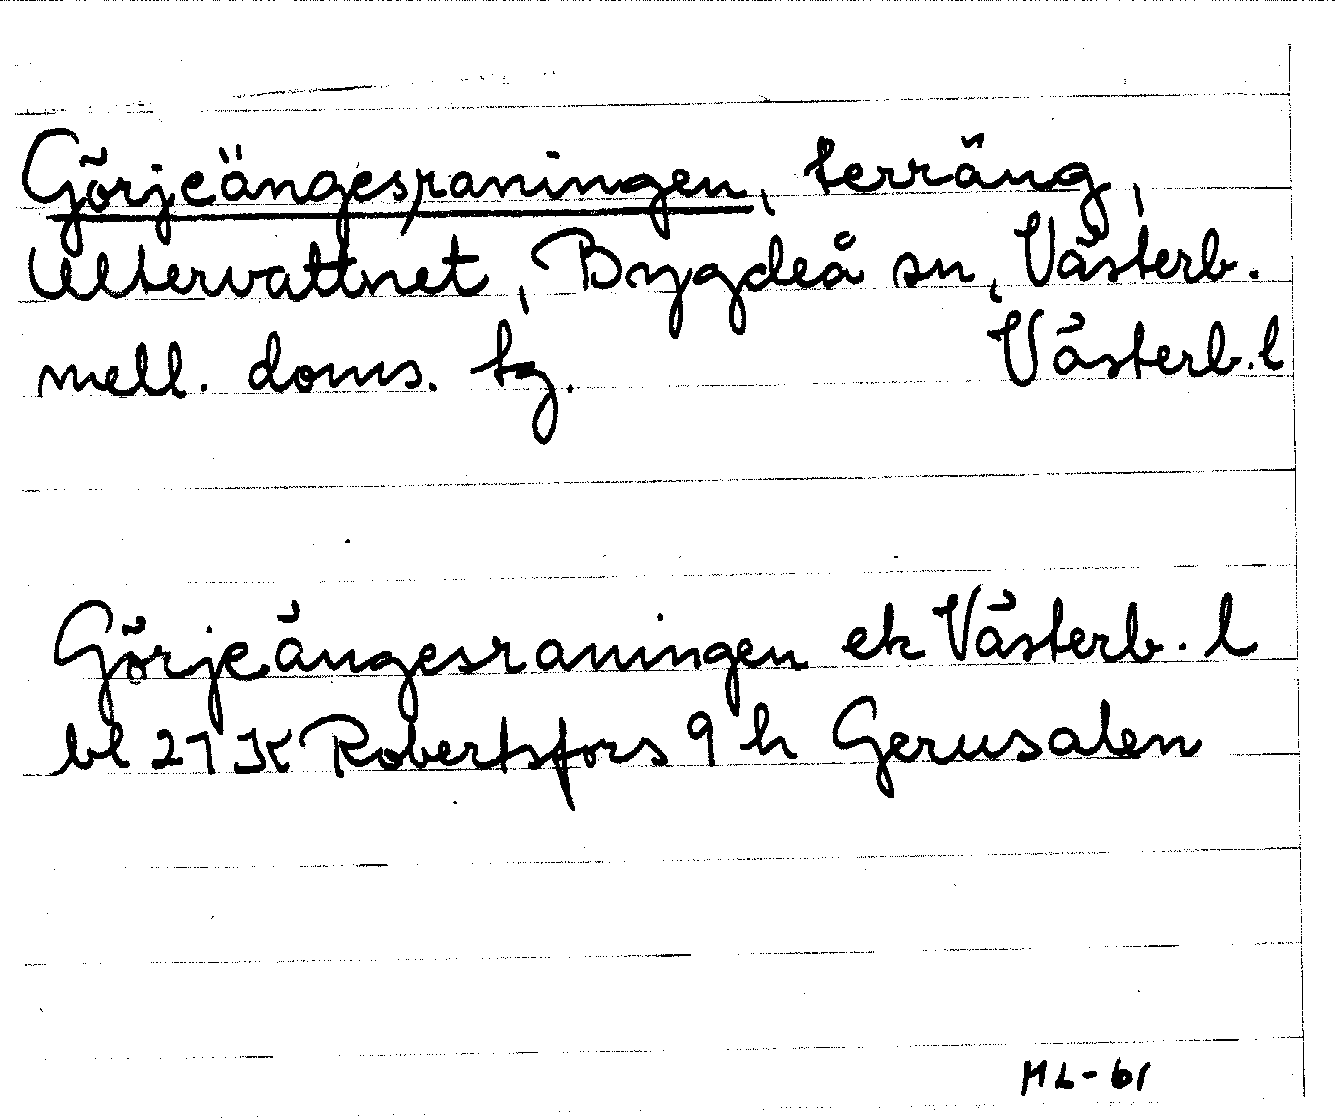 Görjeängesraningen, terräng,
Ultervattnet, Bygdeå sn, Västerb.
mell. doms. tg. Västerb. l
Görjeängesraningen ek Västerb. l
bl 21 K Robertsfors 9 h Gerusalen
ML-61